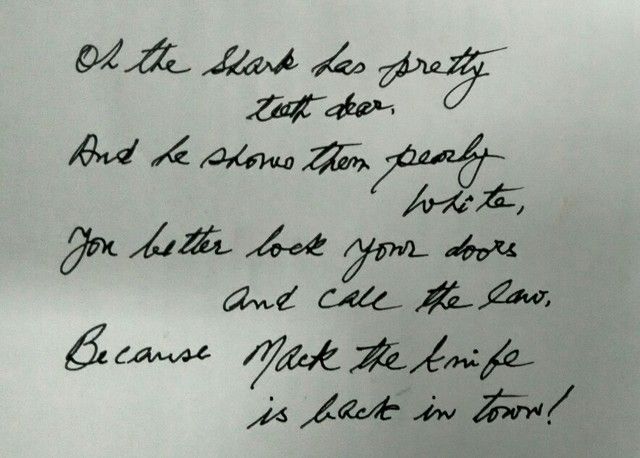 Oh the Shark has pretty
teeth dear.
And he shows them pearly
white,
You better lock your doors
and call the law,
Because Mack the knife
is back in town!